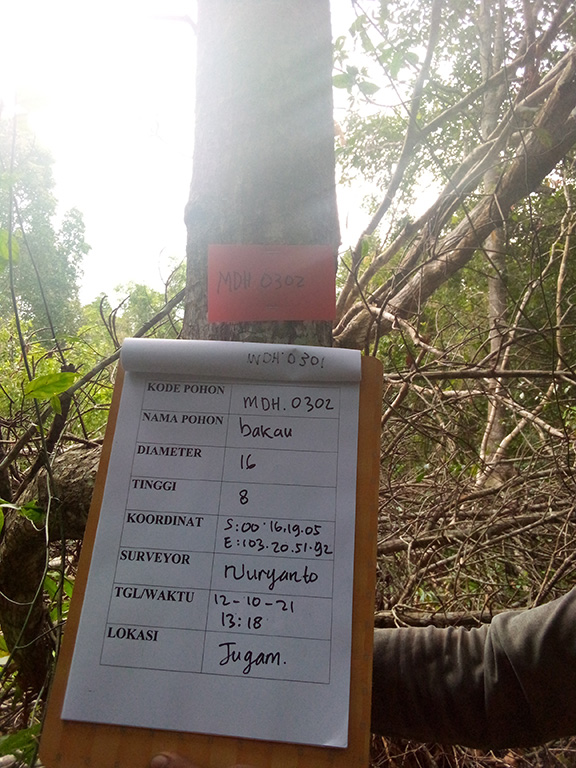 MDH 0302
MDH.0301
KODE POHON MDH.0302
NAMA POHON bakau
DIAMETER 16
TINGGI 8
KOORDINAT S:00.16.19.05
E:103.20.51.92
SURVEYOR Nuryanto
TGL/WAKTU 12-10-21
13:18
LOKASI Jugam.